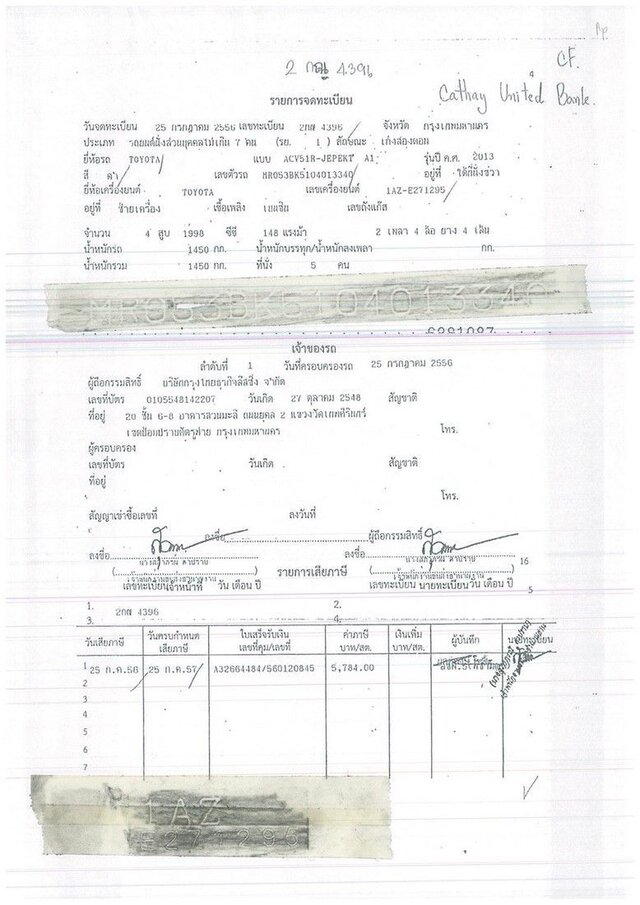 2 กญ 4396
CF.
Cathay United Bank.
รายการจดทะเบียน
วันจดทะเบียน 25 กรกฎาคม 2556 เลขทะเบียน 2กญ 4396 จังหวัด กรุงเทพมหานคร
ประเภท รถยนต์นั่งส่วนบุคคลไม่เกิน 7 คน (รย. 1 ) ลักษณะ เก๋งสองตอน
ยี่ห้อรถ TOYOTA แบบ ACV51R-JEPEKT A1 รุ่นปี ค.ศ. 2013
สี ดำ เลขตัวรถ MR053BK5104013340 อยู่ที่ ใต้ที่นั่งขวา
ยี่ห้อเครื่องยนต์ TOYOTA เลขเครื่องยนต์ 1AZ-E271295
อยู่ที่ ซ้ายเครื่อง เชื้อเพลิง เบนซิน เลขถังแก๊ส
จำนวน 4 สูบ 1998 ซีซี 148 แรงม้า 2 เพลา 4 ล้อ ยาง 4 เส้น
น้ำหนักรถ 1450 กก. น้ำหนักบรรทุก/น้ำหนักลงเพลา กก.
น้ำหนักรวม 1450 กก. ที่นั่ง 5 คน
MR053BK5104013340
6281087
เจ้าของรถ
ลำดับที่ 1 วันที่ครอบครองรถ 25 กรกฎาคม 2556
ผู้ถือกรรมสิทธิ์ บริษัทกรุงไทยธุรกิจลีสซิ่ง จำกัด
เลขที่บัตร 0105548142207 วันเกิด 27 ตุลาคม 2548 สัญชาติ
ที่อยู่ 20 ชั้น 6-8 อาคารสวนมะลิ ถนนยุคล 2 แขวงวัดเทพศิรินทร์
เขตป้อมปราบศัตรูพ่าย กรุงเทพมหานคร โทร.
ผู้ครอบครอง
เลขที่บัตร วันเกิด สัญชาติ
ที่อยู่
โทร.
สัญญาเช่าซื้อเลขที่ ลงวันที่
ลงชื่อ ผู้ถือกรรมสิทธิ์
ลงชื่อ ลงชื่อ
16
รายการเสียภาษี
เลขทะเบียน เจ้าหน้าที่ วัน เดือน ปี เลขทะเบียน นายทะเบียน วัน เดือน ปี
5
1. 2กญ 4396 2.
3. 4.
วันเสียภาษี วันครบกำหนดเสียภาษี ใบเสร็จรับเงิน เลขที่คุม/เลขที่ ค่าภาษี บาท/สต. เงินเพิ่ม บาท/สต. ผู้บันทึก นายทะเบียน
1 25 ก.ค.56 25 ก.ค.57 A32664484/560120845 5,784.00
2
3
4
5
6
7
1AZ
E271295